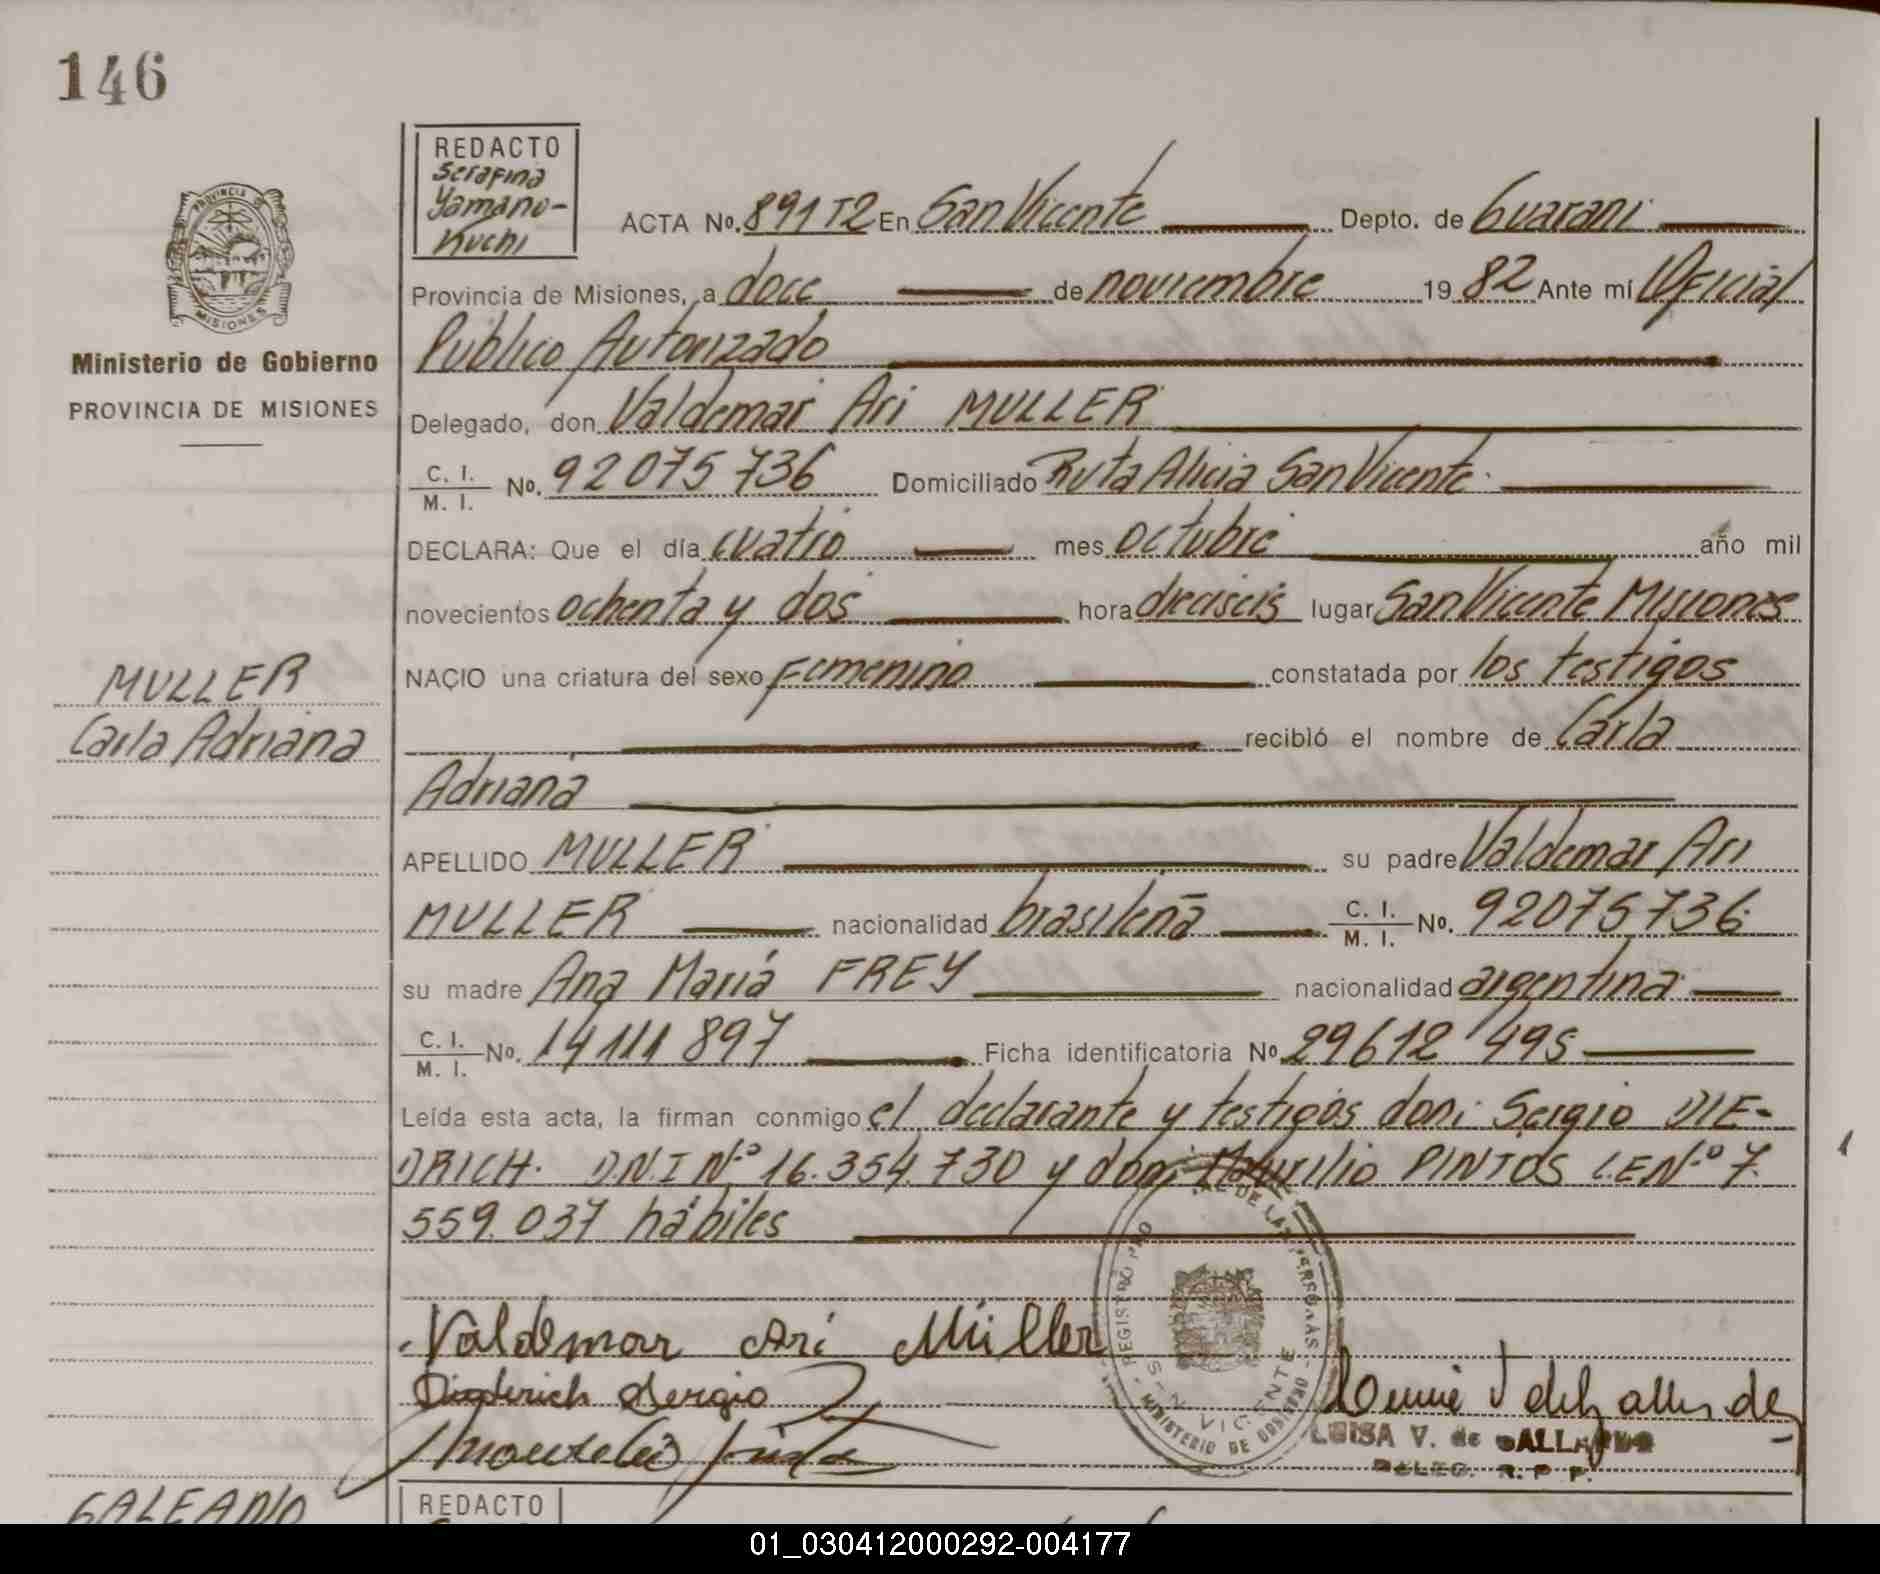 146
REDACTO
Serafina
Yamano-
Kuchi
PROVINCIA
MISIONES
Ministerio de Gobierno
PROVINCIA DE MISIONES
ACTA No. 891 T2 En San Vicente Depto. de Guarani
Provincia de Misiones, a doce de noviembre 19 82 Ante mí Oficial
Público Autorizado
Delegado, don Valdemar Ari MULLER
C. I. / M. I. No. 92 075 736 Domiciliado Ruta Alicia San Vicente.
DECLARA: Que el día cuatro mes octubre año mil
novecientos ochenta y dos hora dieciseis lugar San Vicente Misiones
NACIO una criatura del sexo Femenino constatada por los testigos
recibió el nombre de Carla
Adriana
APELLIDO MULLER su padre Valdemar Ari
MULLER nacionalidad brasileña C. I. / M. I. No. 92075736.
su madre Ana María FREY nacionalidad argentina
C. I. / M. I. No. 14 111 897 Ficha identificatoria No 29612 495
Leída esta acta, la firman conmigo el declarante y testigos don: Sergio DIE-
DRICH. D.N.I Nº 16.354.730 y don: Maurilio PINTOS L.E Nº 7.
559.037 hábiles
MULLER
Carla Adriana
Valdemar Ari Müller
Diederich Sergio
REGISTRO DE LAS PERSONAS
SAN VICENTE
MINISTERIO DE GOBIERNO
LUISA V. de GALLARDO
DELEG. R. P. P.
GALEANO
REDACTO
01_030412000292-004177